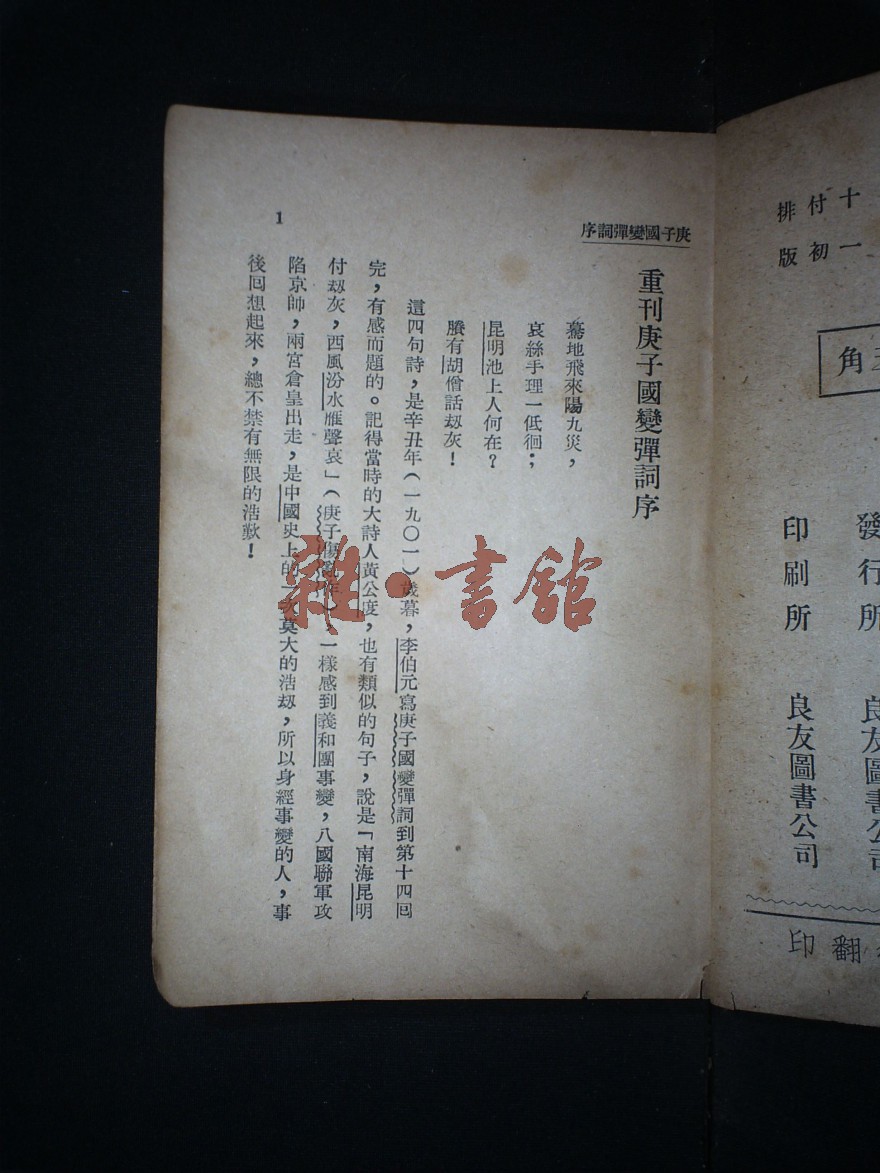 十付排
一初版
角
發行所　良友圖書公司
印刷所　良友圖書公司
翻印
庚子國變彈詞序
重刊庚子國變彈詞序
驀地飛來陽九災，
哀絲手理一低徊；
昆明池上人何在？
賸有胡僧話刼灰！
這四句詩，是辛丑年（一九〇一）歲暮，李伯元寫庚子國變彈詞到第十四囘
完，有感而題的。記得當時的大詩人黃公度，也有類似的句子，說是「南海昆明
付刼灰，西風汾水雁聲哀」（庚子傷），一樣感到義和團事變，八國聯軍攻
陷京師，兩宮倉皇出走，是中國史上的一次莫大的浩刼，所以身經事變的人，事
後囘想起來，總不禁有無限的浩歎！
1
雜·書館